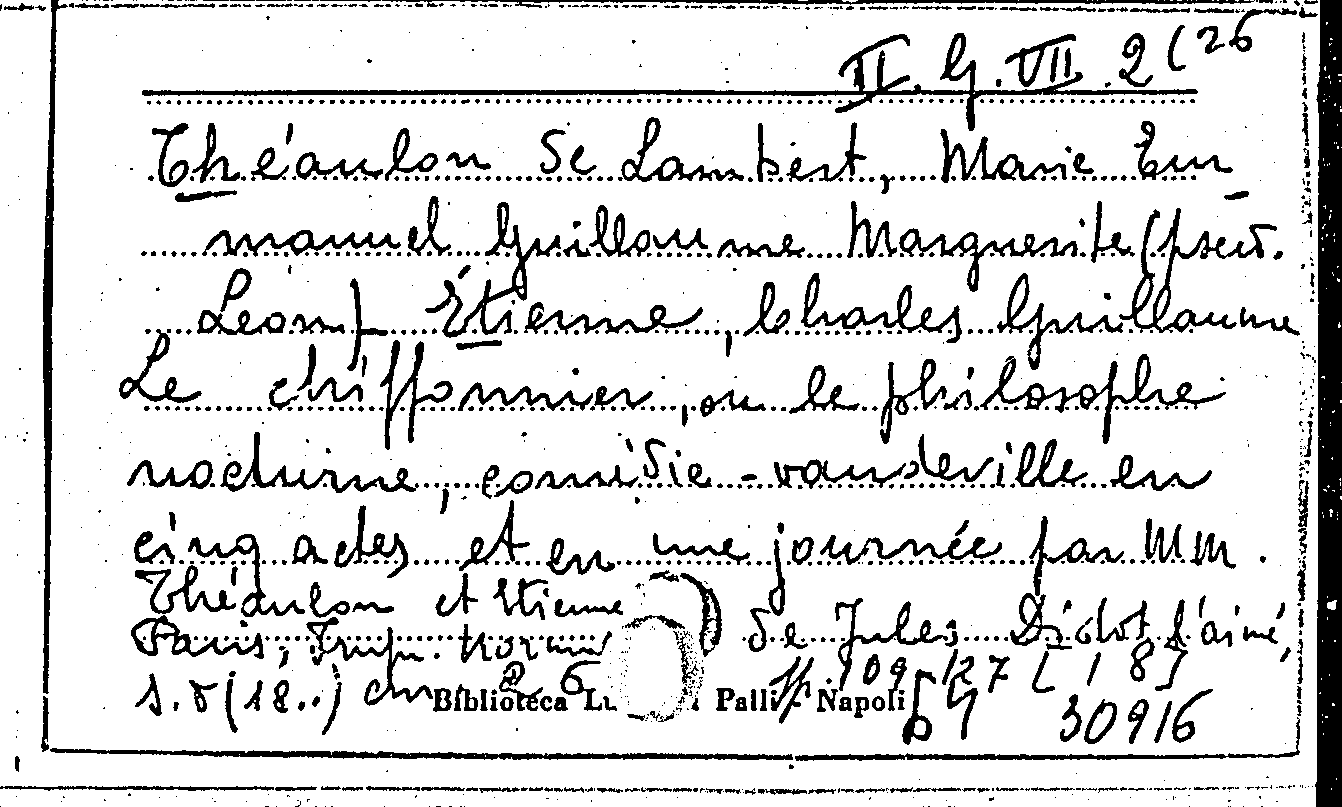 II. G. VII. 2 (26
Théaulon de Lambert, Marie Em-
manuel Guillaume Marguerite (pseud.
Léon) Étienne, Charles Guillaume
Le chiffonnier, ou le philosophe
nocturne, comédie-vaudeville en
cinq actes et en une journée par MM.
Théaulon et Etienne
Paris, Imp. Norm de Jules Didot l'aîné,
s.d (18..) cm 26 pp. 109-127 [18]
Biblioteca Lu Palli - Napoli
30916